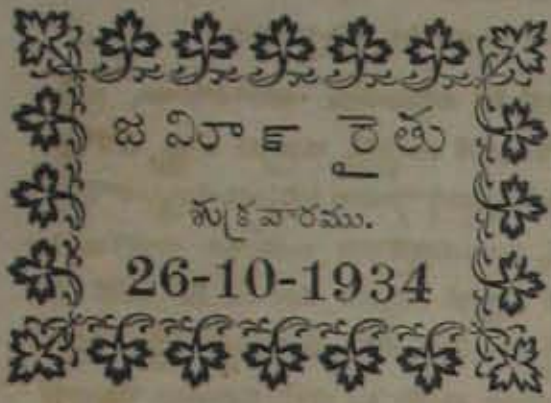 జమీన్ రైతు
శుక్రవారము.
26-10-1934